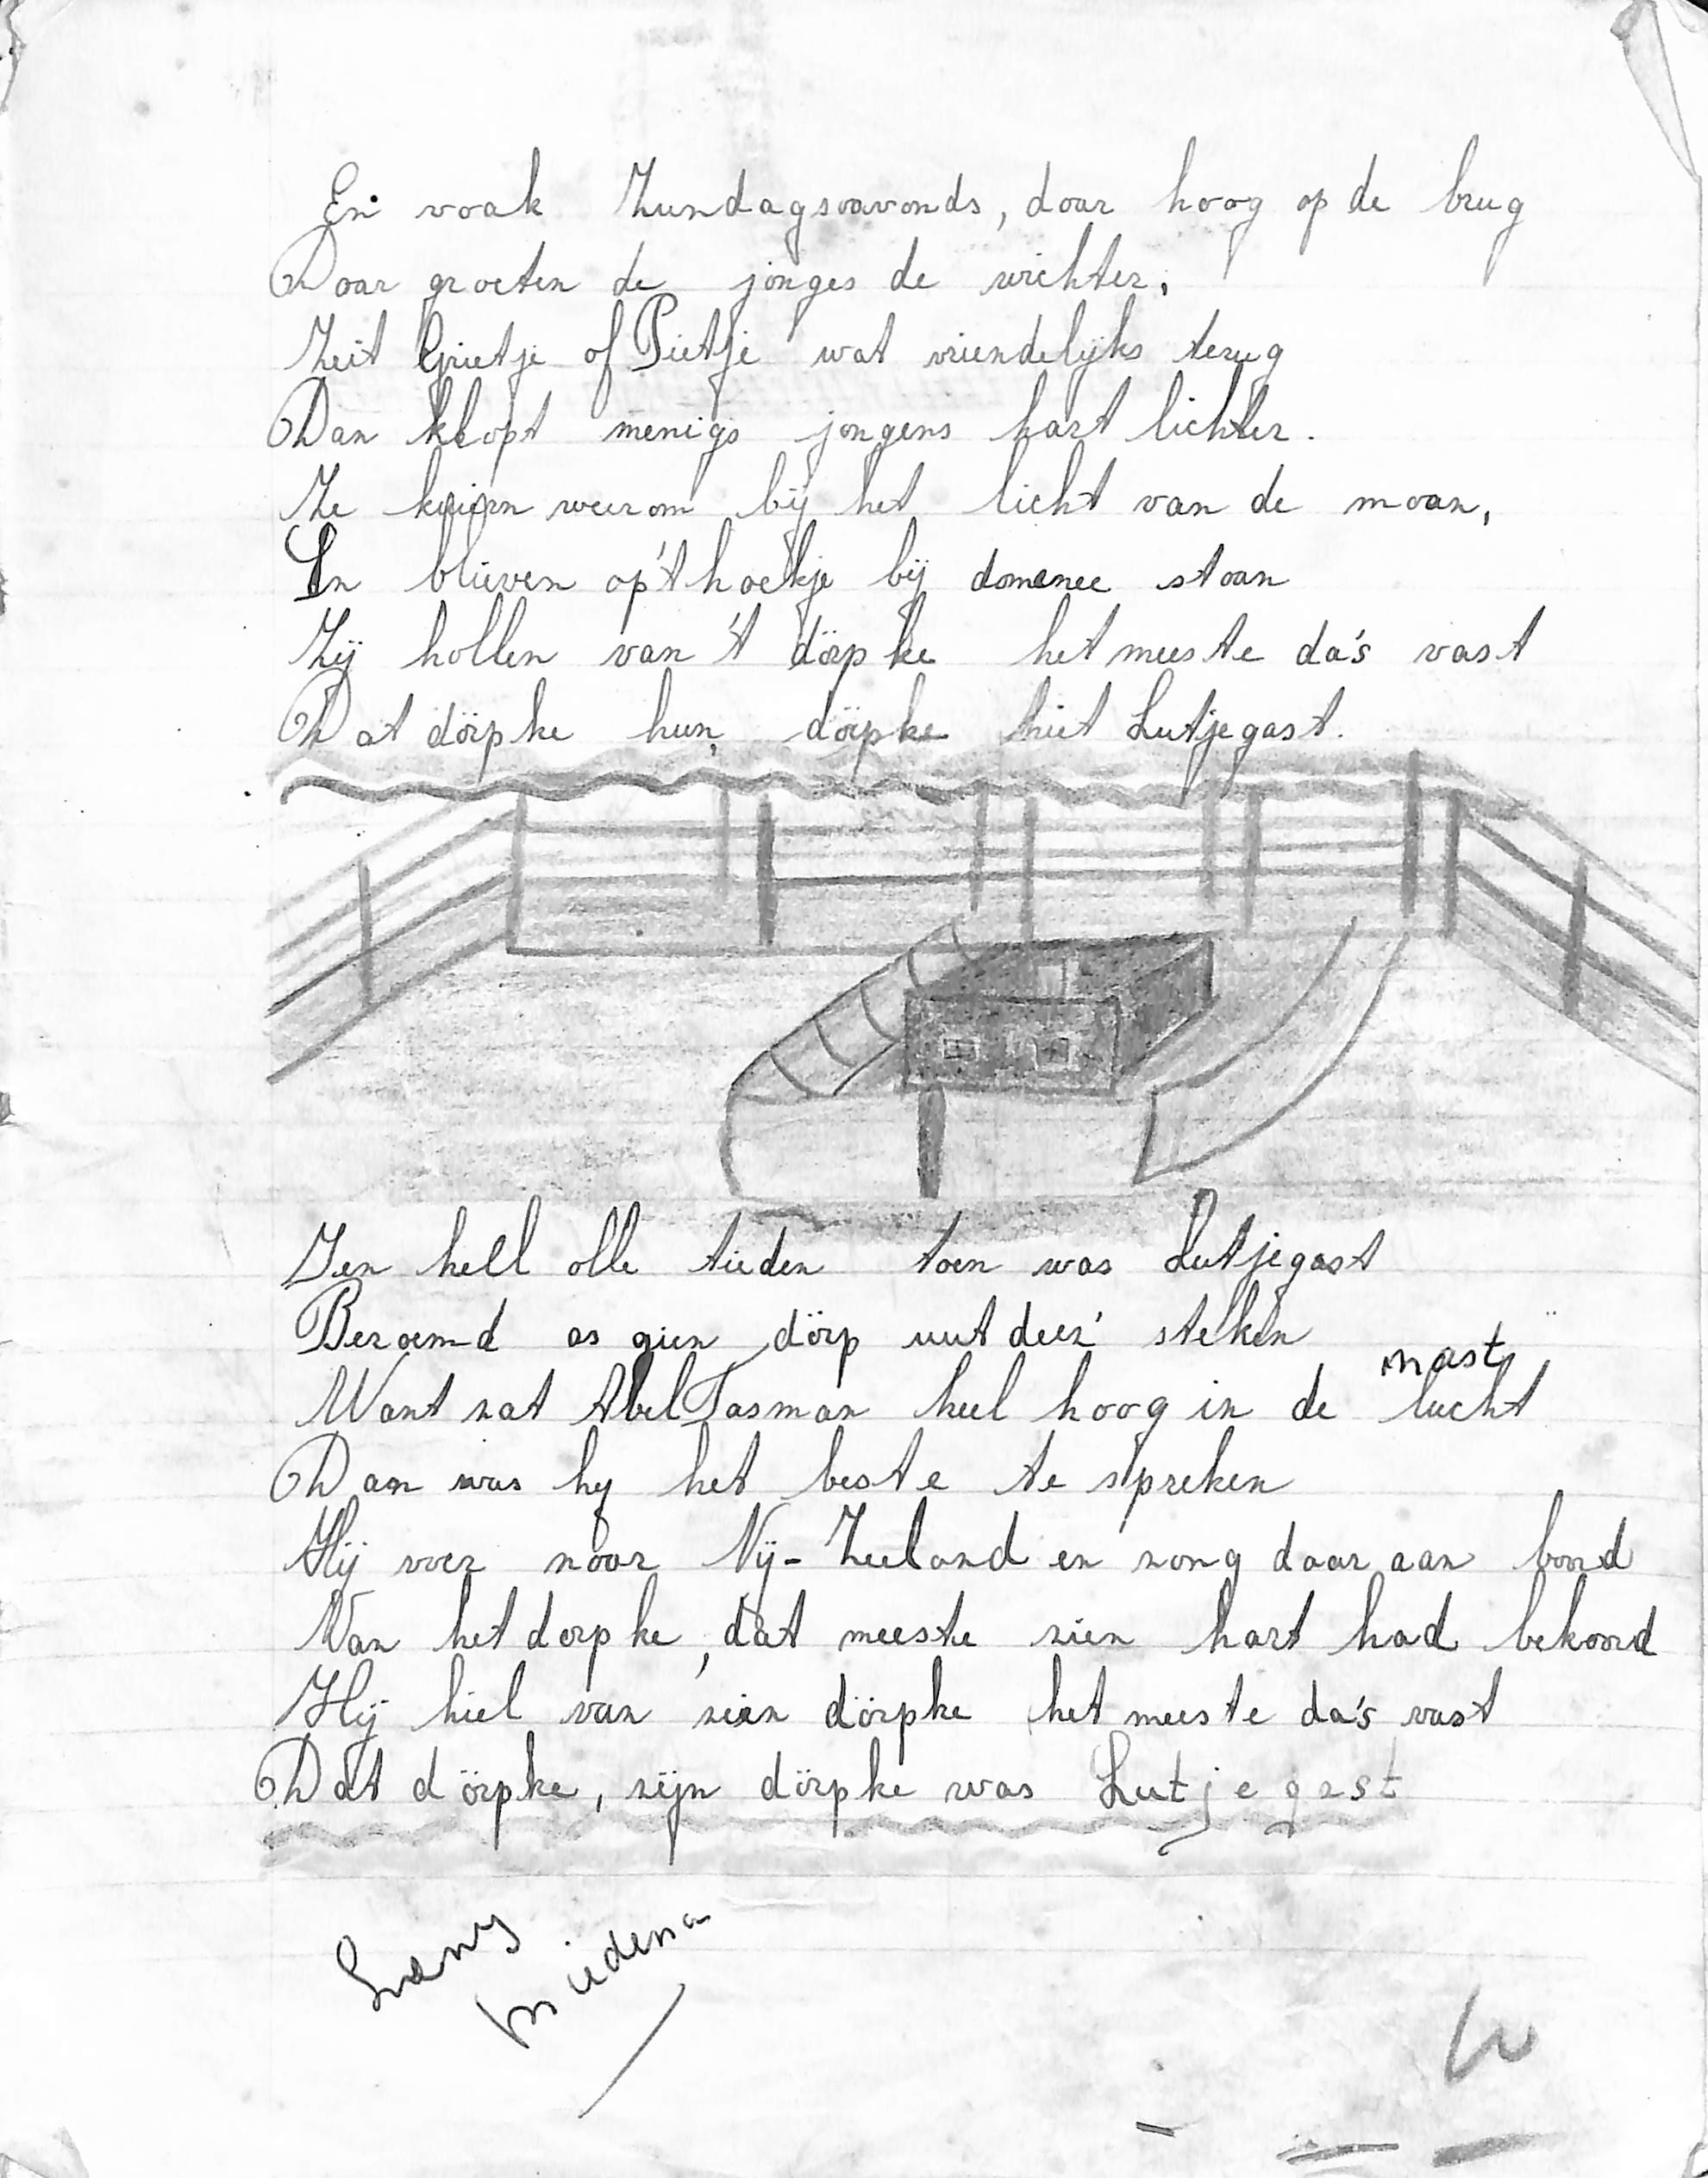 En voak Zundagsoavonds, doar hoog op de brug
Doar groeten de jonges de wichter,
Zeit Grietje of Pietje wat vriendelijks terug
Dan klopt menigs jongens hart lichter.
Ze kuiern weerom bij het licht van de moan,
En blieven op 't hoekje bij domenee stoan
Zij hollen van 't dörpke het meeste da's vast
Dat dörpke hun, dörpke hiet Lutjegast.
Ien hell olle tieden toen was Lutjegast
Beroemd as gien dörp uut deez' steken
mast
Want zat Abel Tasman heel hoog in de lucht
Dan was hij het beste te spreken
Hij voer noar Nij-Zeeland en zong daar aan boord
Van het dorpke, dat meeste zien hart had bekoord
Hij hiel van zien dörpke het meeste da's vast
Dat dörpke, zijn dörpke was Lutjegast